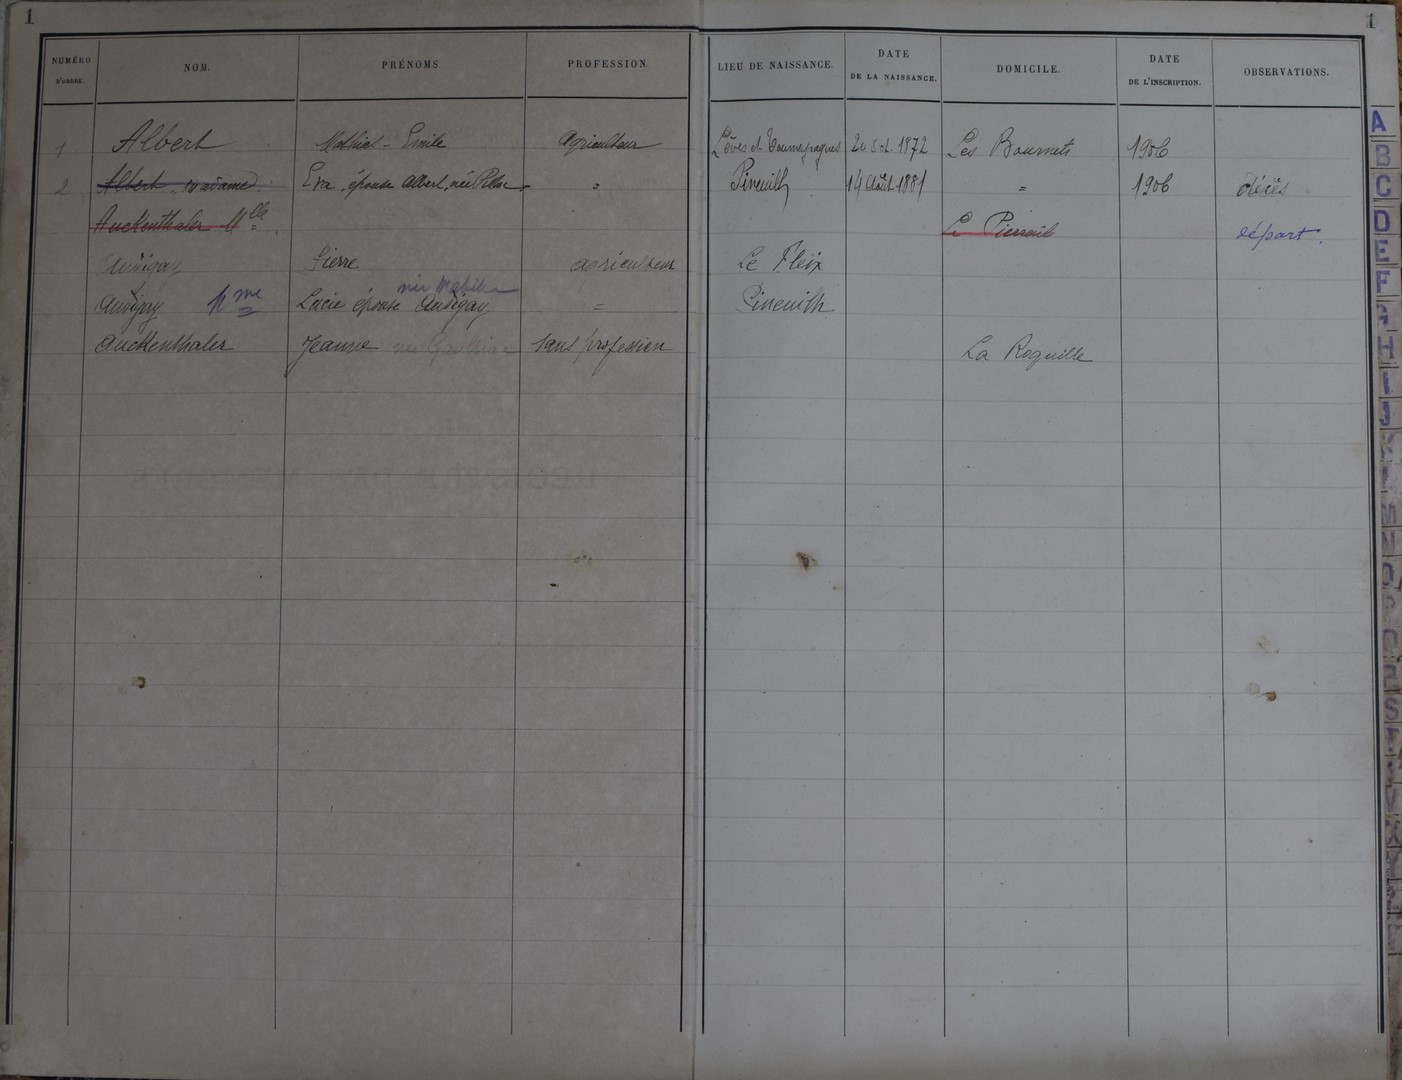 1 1
NUMÉRO D'ORDRE. NOM. PRÉNOMS. PROFESSION. LIEU DE NAISSANCE. DATE DE LA NAISSANCE. DOMICILE. DATE DE L'INSCRIPTION. OBSERVATIONS.
1 Albert Mathieu - Emile Agriculteur Lèves et Thoumeyragues 20 Oct. 1872 Les Bournets 1906
2 Albert madame Eva, épouse Albert, née = Pineuilh 14 Août 1881 = 1906 décès
Auckenthaler Mlle Le départ.
Audigay Pierre agriculteur Le Fleix
Audigay Mme Lucie épouse Audigay née = Pineuilh
Auckenthaler Jeanne née sans profession La Roquille
A
B
C
D
E
F